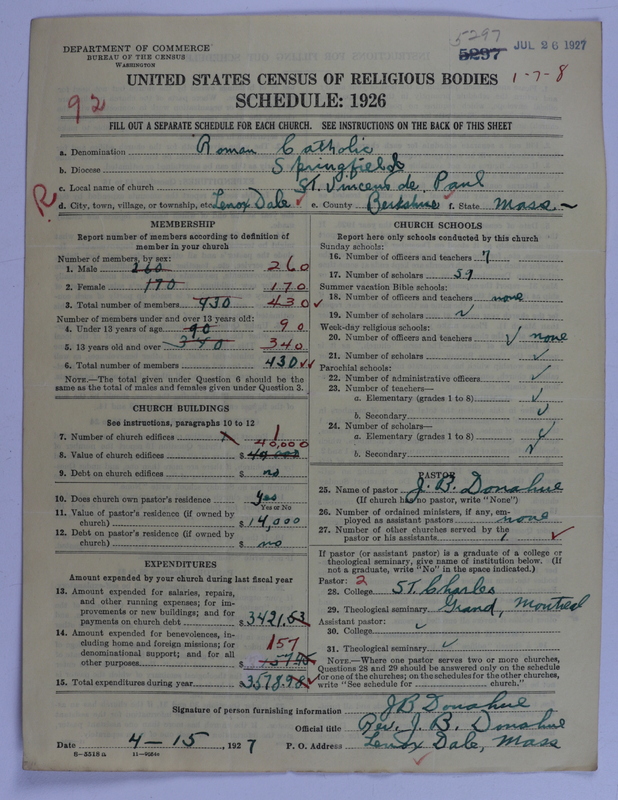 5297
5297 JUL 26 1927
DEPARTMENT OF COMMERCE
BUREAU OF THE CENSUS
WASHINGTON
UNITED STATES CENSUS OF RELIGIOUS BODIES 1-7-8
92 SCHEDULE: 1926
FILL OUT A SEPARATE SCHEDULE FOR EACH CHURCH. SEE INSTRUCTIONS ON THE BACK OF THIS SHEET
a. Denomination Roman Catholic
b. Diocese Springfield
c. Local name of church ST. Vincent de Paul
R
d. City, town, village, or township, etc. Lenox Dale e. County Berkshire f. State Mass
MEMBERSHIP
Report number of members according to definition of
member in your church
Number of members, by sex:
1. Male 260 260
2. Female 170 170
3. Total number of members 430 430
Number of members under and over 13 years old:
4. Under 13 years of age 90 90
5. 13 years old and over 340 340
6. Total number of members 430
NOTE.—The total given under Question 6 should be the
same as the total of males and females given under Question 3.
CHURCH BUILDINGS
See instructions, paragraphs 10 to 12
7. Number of church edifices 1
40,000
8. Value of church edifices $40,000
9. Debt on church edifices $ no
10. Does church own pastor's residence yes
Yes or No
11. Value of pastor's residence (if owned by
church) $14,000
12. Debt on pastor's residence (if owned by
church) $ no
EXPENDITURES
Amount expended by your church during last fiscal year
13. Amount expended for salaries, repairs,
and other running expenses; for im-
provements or new buildings; and for
payments on church debt $3421.53
14. Amount expended for benevolences, in-
cluding home and foreign missions; for
denominational support; and for all
other purposes $ 157
15. Total expenditures during year $3578.98
CHURCH SCHOOLS
Report here only schools conducted by this church
Sunday schools:
16. Number of officers and teachers 7
17. Number of scholars 59
Summer vacation Bible schools:
18. Number of officers and teachers none
19. Number of scholars ✓
Week-day religious schools:
20. Number of officers and teachers ✓ none
21. Number of scholars ✓
Parochial schools:
22. Number of administrative officers ✓
23. Number of teachers—
a. Elementary (grades 1 to 8) ✓
b. Secondary ✓
24. Number of scholars—
a. Elementary (grades 1 to 8) ✓
b. Secondary ✓
PASTOR
25. Name of pastor J. B. Donahue
(If church has no pastor, write "None")
26. Number of ordained ministers, if any, em-
ployed as assistant pastors none
27. Number of other churches served by the
pastor or his assistants 1 ✓
If pastor (or assistant pastor) is a graduate of a college or
theological seminary, give name of institution below. (If
not a graduate, write "No" in the space indicated.)
Pastor: 2
28. College ST. Charles
29. Theological seminary Grand, Montreal
Assistant pastor:
30. College ✓
31. Theological seminary ✓
NOTE.—Where one pastor serves two or more churches,
Questions 28 and 29 should be answered only on the schedule
for one of the churches; on the schedules for the other churches,
write "See schedule for ........ church."
Signature of person furnishing information JB Donahue
Official title Rev. J. B. Donahue
Date 4-15, 1927 P. O. Address Lenox Dale, Mass